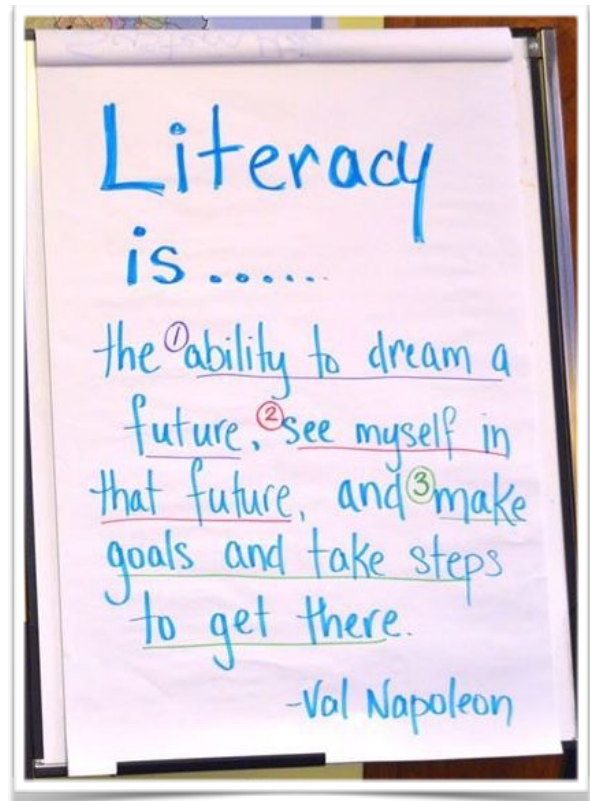 Literacy
is......
the ①ability to dream a
future, ②see myself in
that future, and ③make
goals and take steps
to get there.
-Val Napoleon